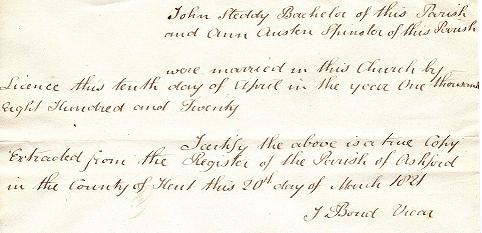 John Steddy Bachelor of this Parish
and Ann Austen Spinster of this Parish
were married in this Church by
Licence this tenth day of April in the year One thousand
Eight Hundred and Twenty
I certify the above is a true Copy
Extracted from the Register of the Parish of Ashford
in the County of Kent this 20th day of March 1821
J Bond Vicar